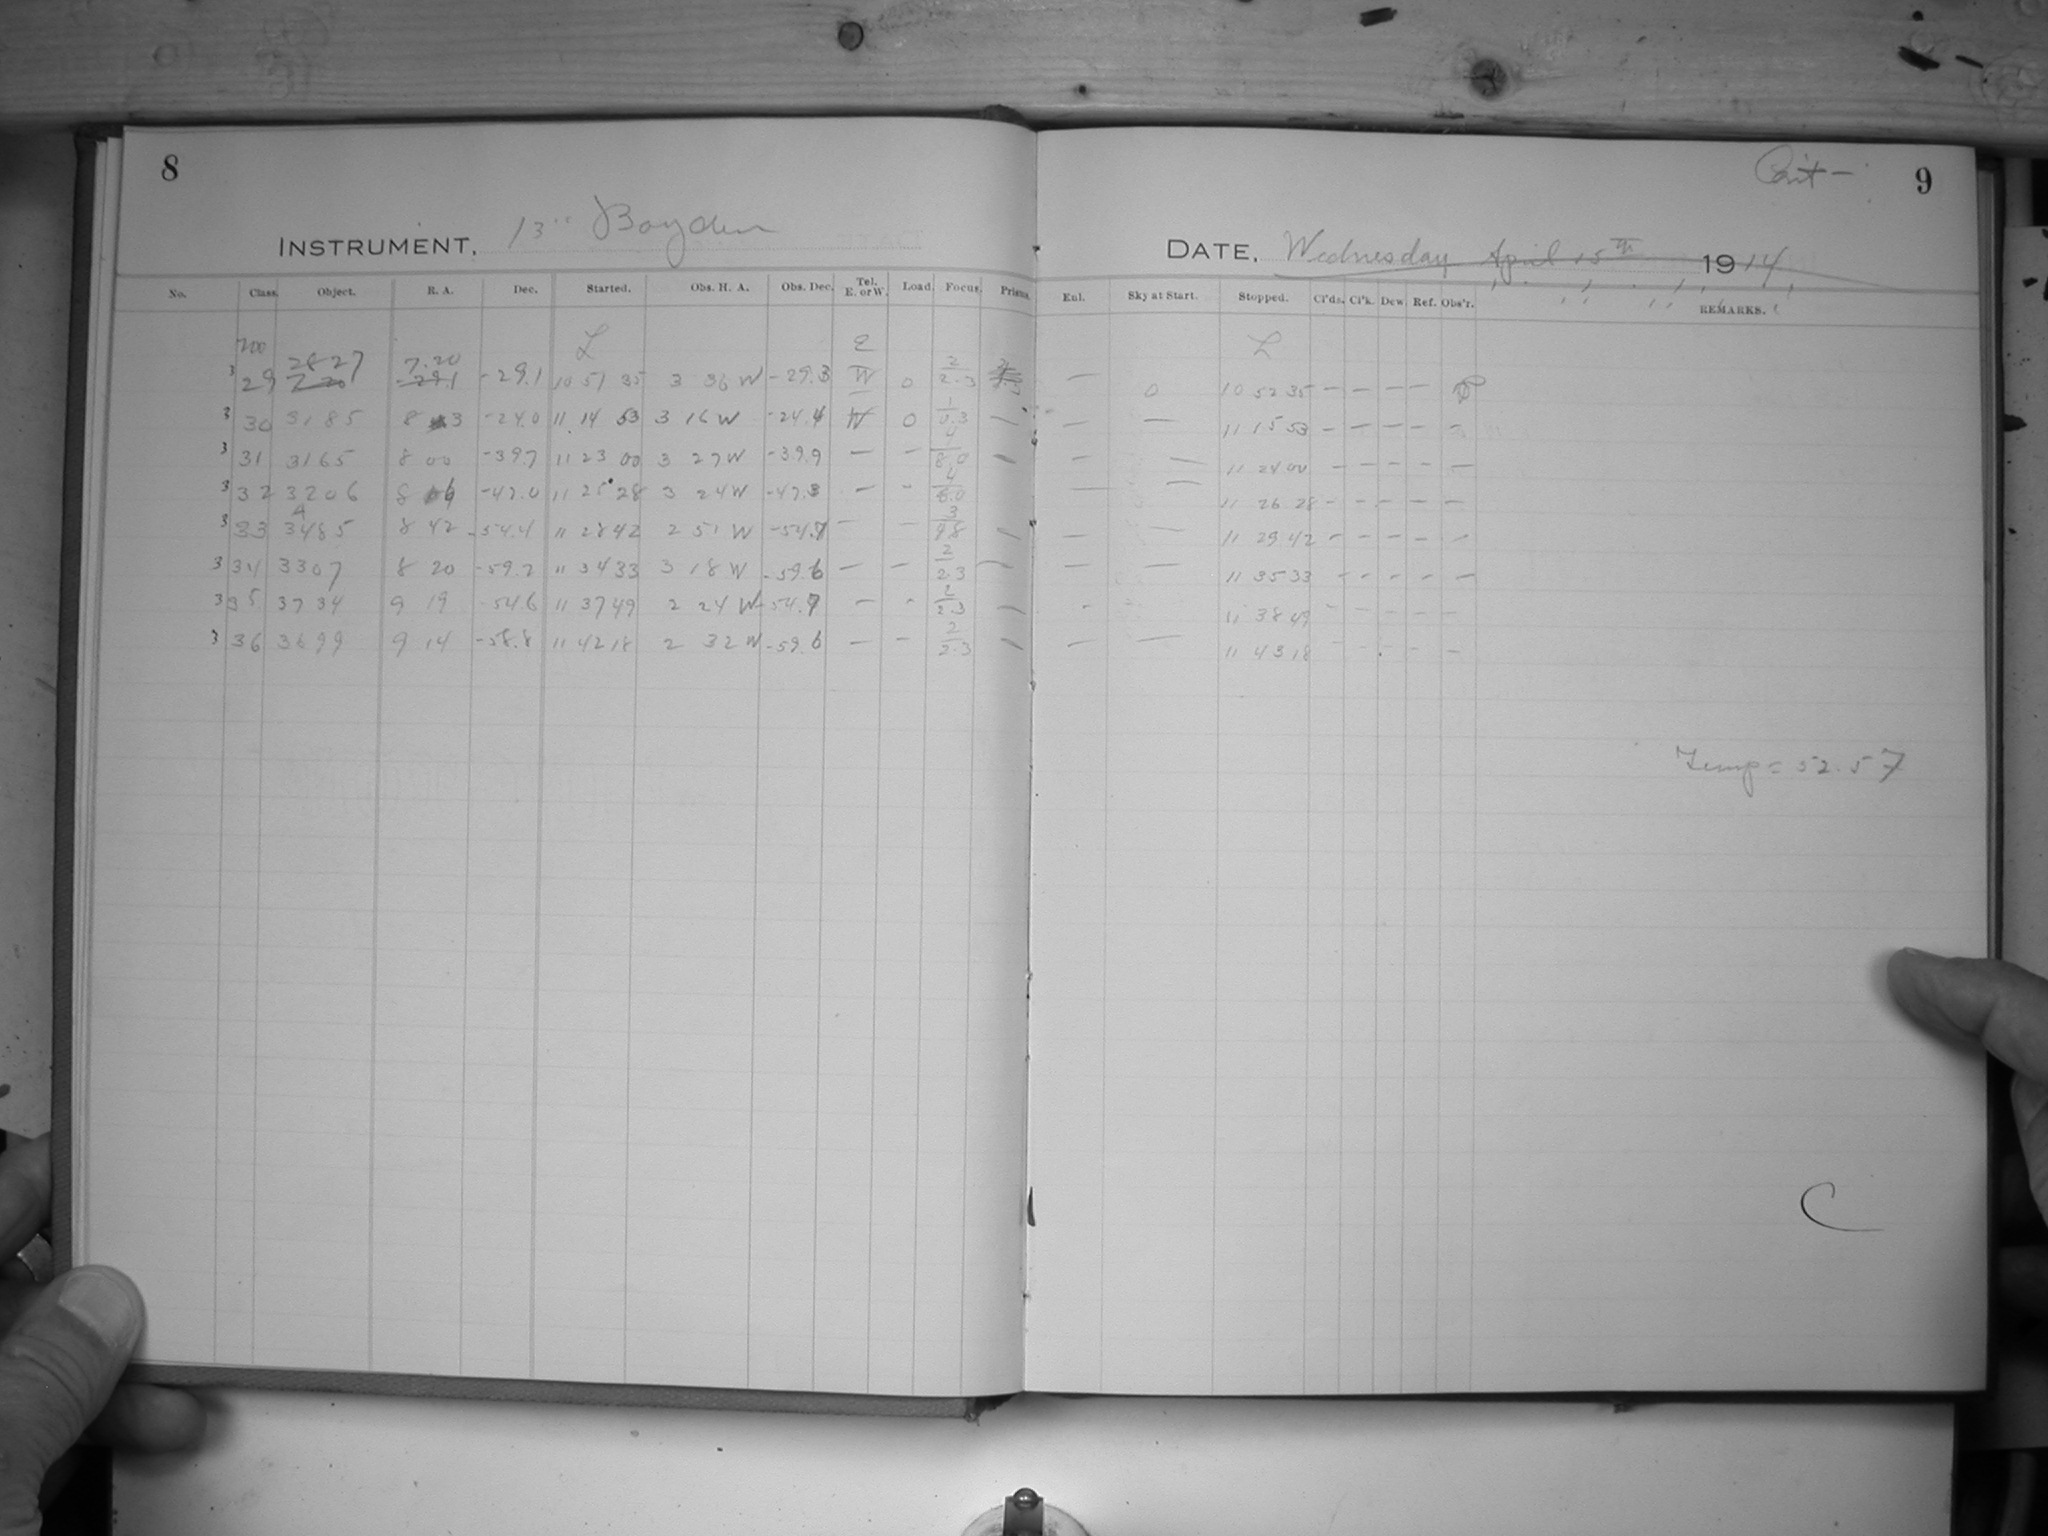 8
INSTRUMENT. 13" Boyden
No. Class. Object. R. A. Dec. Started. Obs. H. A. Obs. Dec. Tel. E. or W. Load. Focus. Prisms.
700 L E
3 29 2827 7.20 -29.1 10 51 35 3 36 W -29.3 W 0 2/2.3
3 30 3185 8 3 -24.0 11 14 53 3 16 W -24.4 W 0 —
3 31 3165 8 00 -39.7 11 23 00 3 27 W -39.9 — - 4/8.0 —
3 32 3206 8 06 -47.0 11 25 28 3 24 W -47.3 — -
3 33 3485 A 8 42 -54.4 11 28 42 2 51 W — - 3/4.8 —
3 34 3307 8 20 -59.2 11 34 33 3 18 W -59.6 — - 2/2.3 —
3 35 3734 9 19 -54.6 11 37 49 2 24 W -54.9 — - 2/2.3 —
3 36 3699 9 14 -58.8 11 42 18 2 32 W -59.6 — - 2/2.3 —
9
DATE. Wednesday April 15th 1914
Enl. Sky at Start. Stopped. Cl'ds. Cl'k. Dew. Ref. Obs'r. REMARKS.
L
— 0 10 52 35 — — — —
— — 11 15 53 — — — — —
— — 11 24 00 — — — — —
— — 11 26 28 — — — — —
— — 11 29 42 — — — — —
— — 11 35 33 — — — — —
- 11 38 49 — — — — —
— — 11 43 18 — — — — —
Temp = 52.57
C